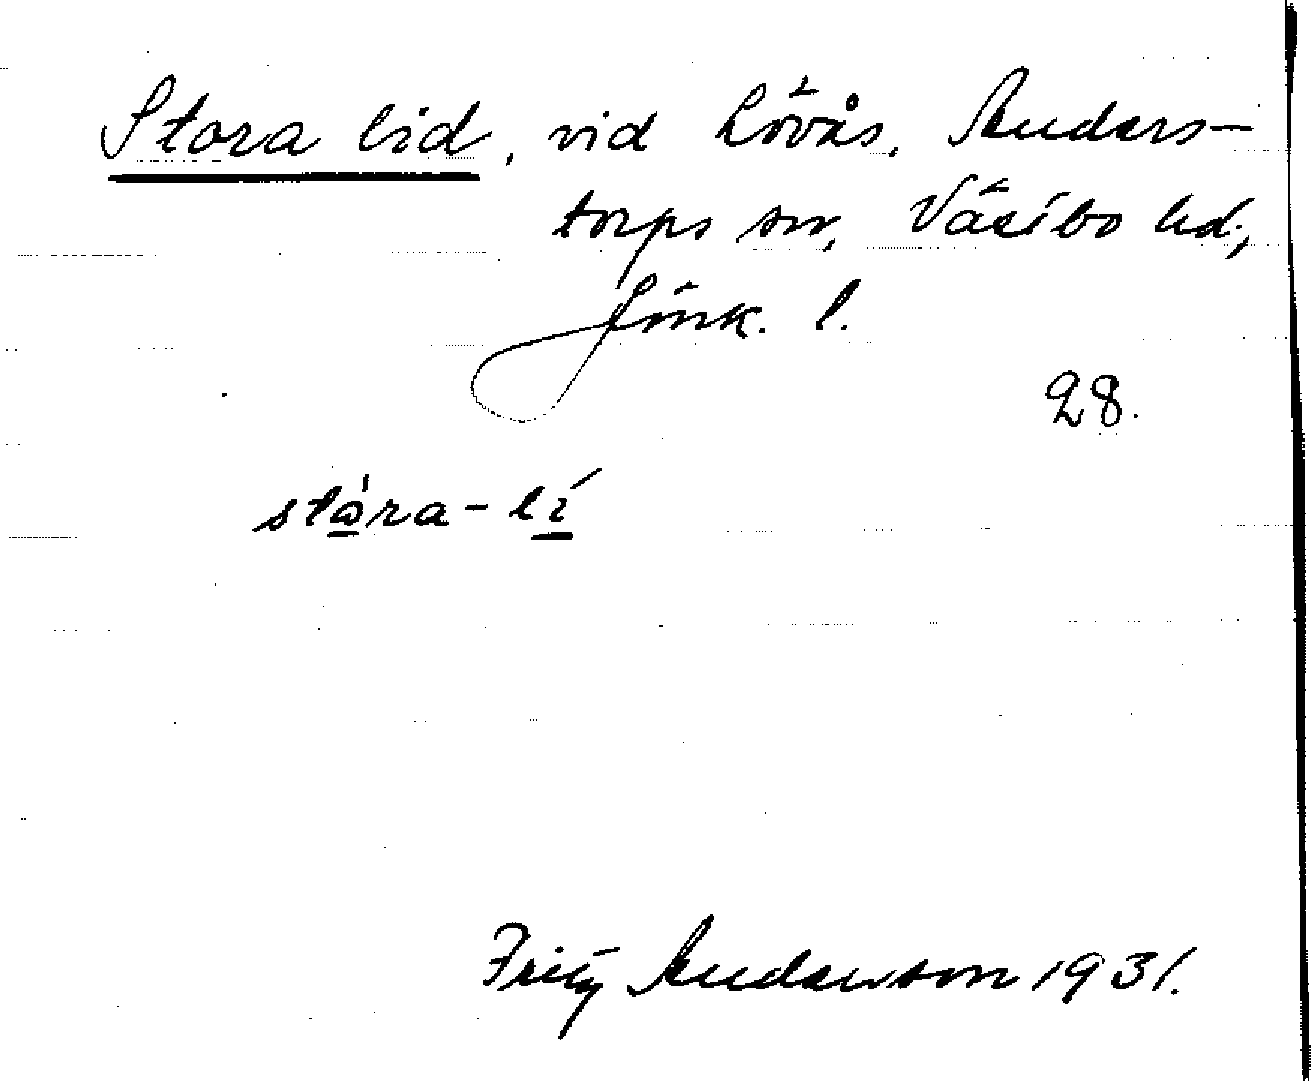 Stora lid, vid Lövås, Anders-
torps sn, Västbo hd.,
Jönk. l.
28.
stɷ̀ra-lí
Fritz Anderson 1931.